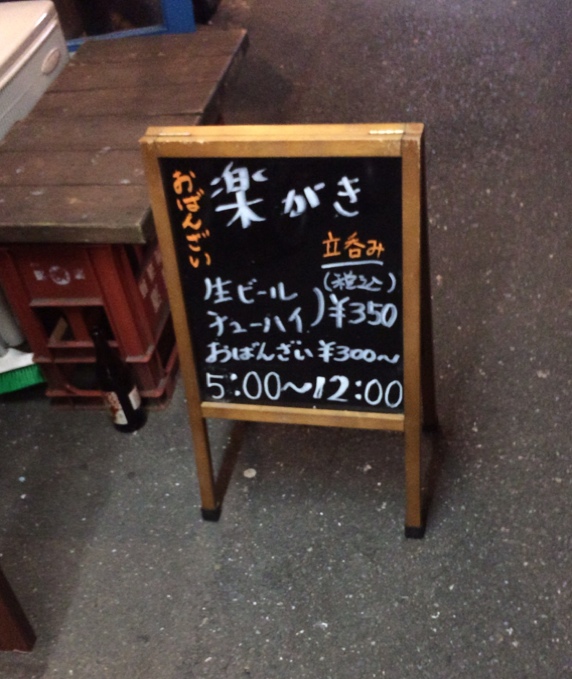 おばんざい
楽がき
立呑み
生ビール
チューハイ
(税込)
¥350
おばんざい ¥300〜
5:00〜12:00